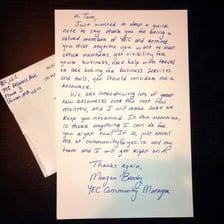 Hi Tom,
Just wanted to drop a quick
note to say thank you for being a
valued member of YEC and remind
you that anytime you want to meet
other members, get visibility for
your business, need help with travel
or are looking for business services
and tools, you should consider me a
resource.
We are introducing lots of great
new resources over the next few
months, and I will make sure to
keep you informed. In the meantime,
is there anything I can do for
you right now? If so, just email
me at community@yec.co and
my team and I will get right on it.
Thanks again,
Morgan Brady
YEC Community Manager
YEC, LLC